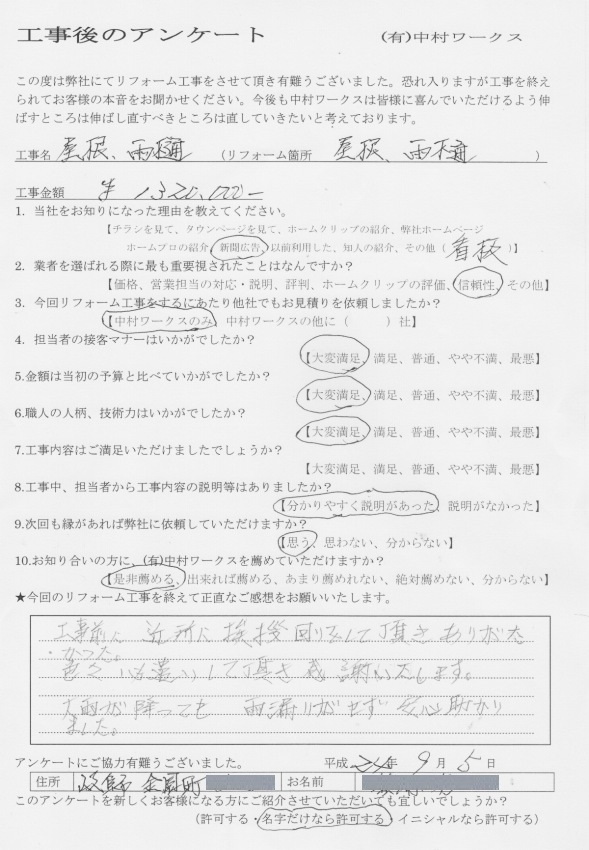 工事後のアンケート (有)中村ワークス
この度は弊社にてリフォーム工事をさせて頂き有難うございました。恐れ入りますが工事を終え
られてお客様の本音をお聞かせください。今後も中村ワークスは皆様に喜んでいただけるよう伸
ばすところは伸ばし直すべきところは直していきたいと考えております。
工事名 屋根、雨樋 (リフォーム箇所 屋根、雨樋 )
工事金額 ¥1,320,000-
1. 当社をお知りになった理由を教えてください。
【チラシを見て、タウンページを見て、ホームクリップの紹介、弊社ホームページ
ホームプロの紹介、新聞広告、以前利用した、知人の紹介、その他( 看板 )】
2. 業者を選ばれる際に最も重要視されたことはなんですか?
【価格、営業担当の対応・説明、評判、ホームクリップの評価、信頼性、その他】
3. 今回リフォーム工事をするにあたり他社でもお見積りを依頼しましたか?
【中村ワークスのみ、中村ワークスの他に( )社】
4. 担当者の接客マナーはいかがでしたか?
【大変満足、満足、普通、やや不満、最悪】
5.金額は当初の予算と比べていかがでしたか?
【大変満足、満足、普通、やや不満、最悪】
6.職人の人柄、技術力はいかがでしたか?
【大変満足、満足、普通、やや不満、最悪】
7.工事内容はご満足いただけましたでしょうか?
【大変満足、満足、普通、やや不満、最悪】
8.工事中、担当者から工事内容の説明等はありましたか?
【分かりやすく説明があった、説明がなかった】
9.次回も縁があれば弊社に依頼していただけますか?
【思う、思わない、分からない】
10.お知り合いの方に、(有)中村ワークスを薦めていただけますか?
【是非薦める、出来れば薦める、あまり薦めれない、絶対薦めない、分からない】
★今回のリフォーム工事を終えて正直なご感想をお願いいたします。
工事前に近所に挨拶回りをして頂きありがた
かった。
色々心遣いして頂き感謝いたします。
大雨が降っても 雨漏りがせず安心助かり
ました。
アンケートにご協力有難うございました。 平成 24年 9月 5日
住所 岐阜市 金園町 お名前
このアンケートを新しくお客様になる方にご紹介させていただいても宜しいでしょうか?
(許可する・名字だけなら許可する・イニシャルなら許可する)